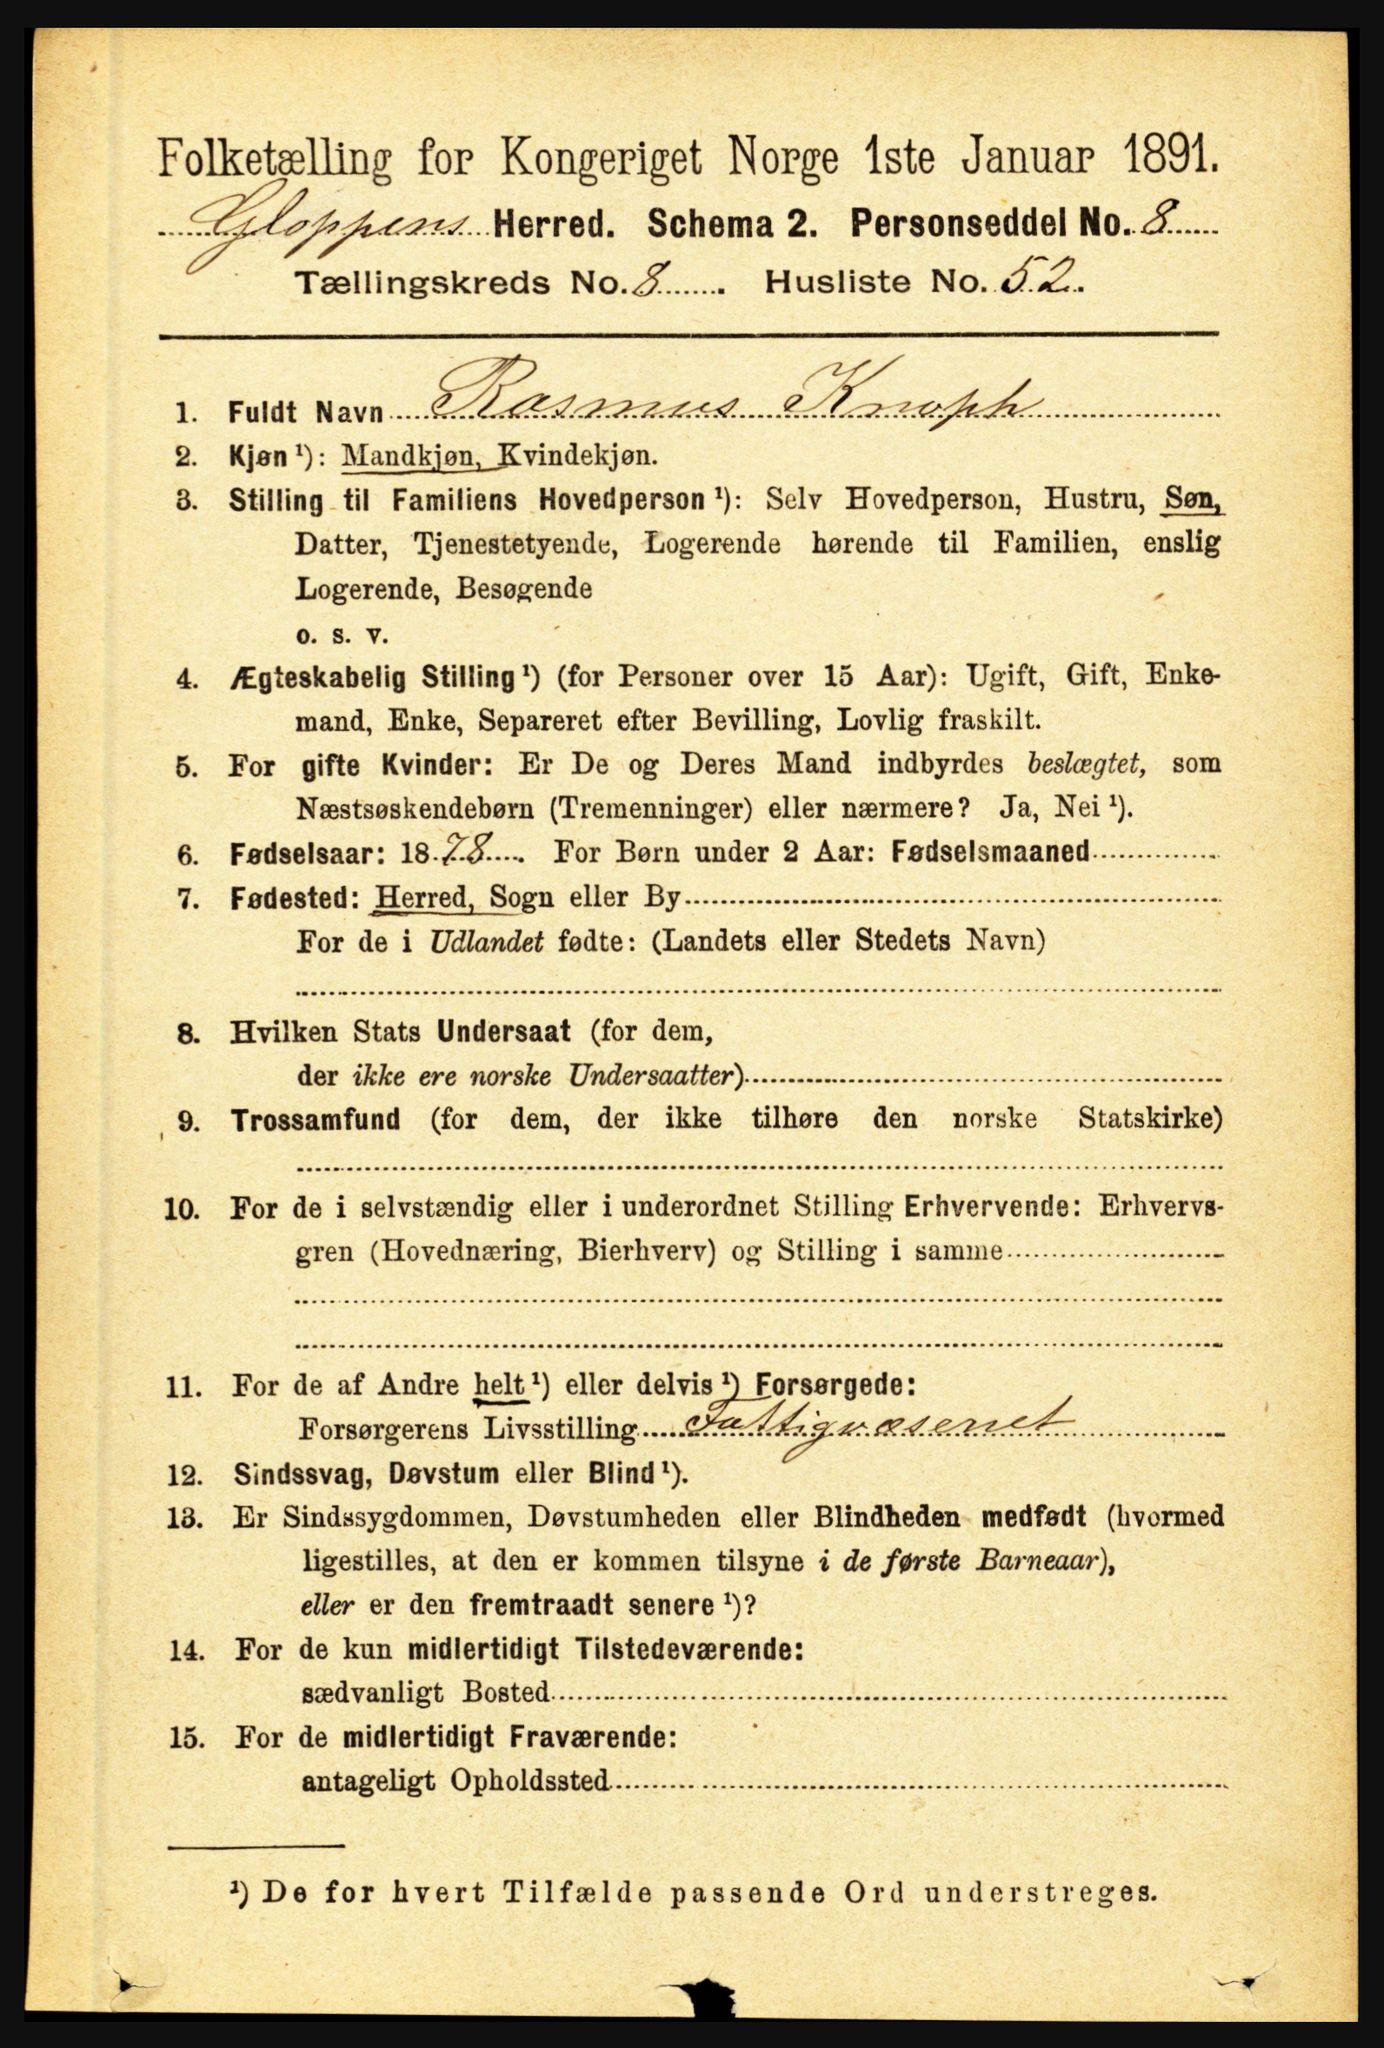 Folketælling for Kongeriget Norge 1ste Januar 1891.
Gloppens Herred. Schema 2. Personseddel No. 8
Tællingskreds No. 8. Husliste No. 52.
1. Fuldt Navn Rasmus Knoph
2. Kjøn ¹): Mandkjøn, Kvindekjøn.
3. Stilling til Familiens Hovedperson ¹): Selv Hovedperson, Hustru, Søn,
Datter, Tjenestetyende, Logerende hørende til Familien, enslig
Logerende, Besøgende
o. s. v.
4. Ægteskabelig Stilling ¹) (for Personer over 15 Aar): Ugift, Gift, Enke-
mand, Enke, Separeret efter Bevilling, Lovlig fraskilt.
5. For gifte Kvinder: Er De og Deres Mand indbyrdes beslægtet, som
Næstsøskendebørn (Tremenninger) eller nærmere? Ja, Nei ¹).
6. Fødselsaar: 1878. For Børn under 2 Aar: Fødselsmaaned
7. Fødested: Herred, Sogn eller By
For de i Udlandet fødte: (Landets eller Stedets Navn)
8. Hvilken Stats Undersaat (for dem,
der ikke ere norske Undersaatter)
9. Trossamfund (for dem, der ikke tilhøre den norske Statskirke)
10. For de i selvstændig eller i underordnet Stilling Erhvervende: Erhvervs-
gren (Hovednæring, Bierhverv) og Stilling i samme
11. For de af Andre helt ¹) eller delvis ¹) Forsørgede:
Forsørgerens Livsstilling Fattigvæsenet
12. Sindssvag, Døvstum eller Blind ¹).
13. Er Sindssygdommen, Døvstumheden eller Blindheden medfødt (hvormed
ligestilles, at den er kommen tilsyne i de første Barneaar),
eller er den fremtraadt senere ¹)?
14. For de kun midlertidigt Tilstedeværende:
sædvanligt Bosted
15. For de midlertidigt Fraværende:
antageligt Opholdssted
¹) De for hvert Tilfælde passende Ord understreges.